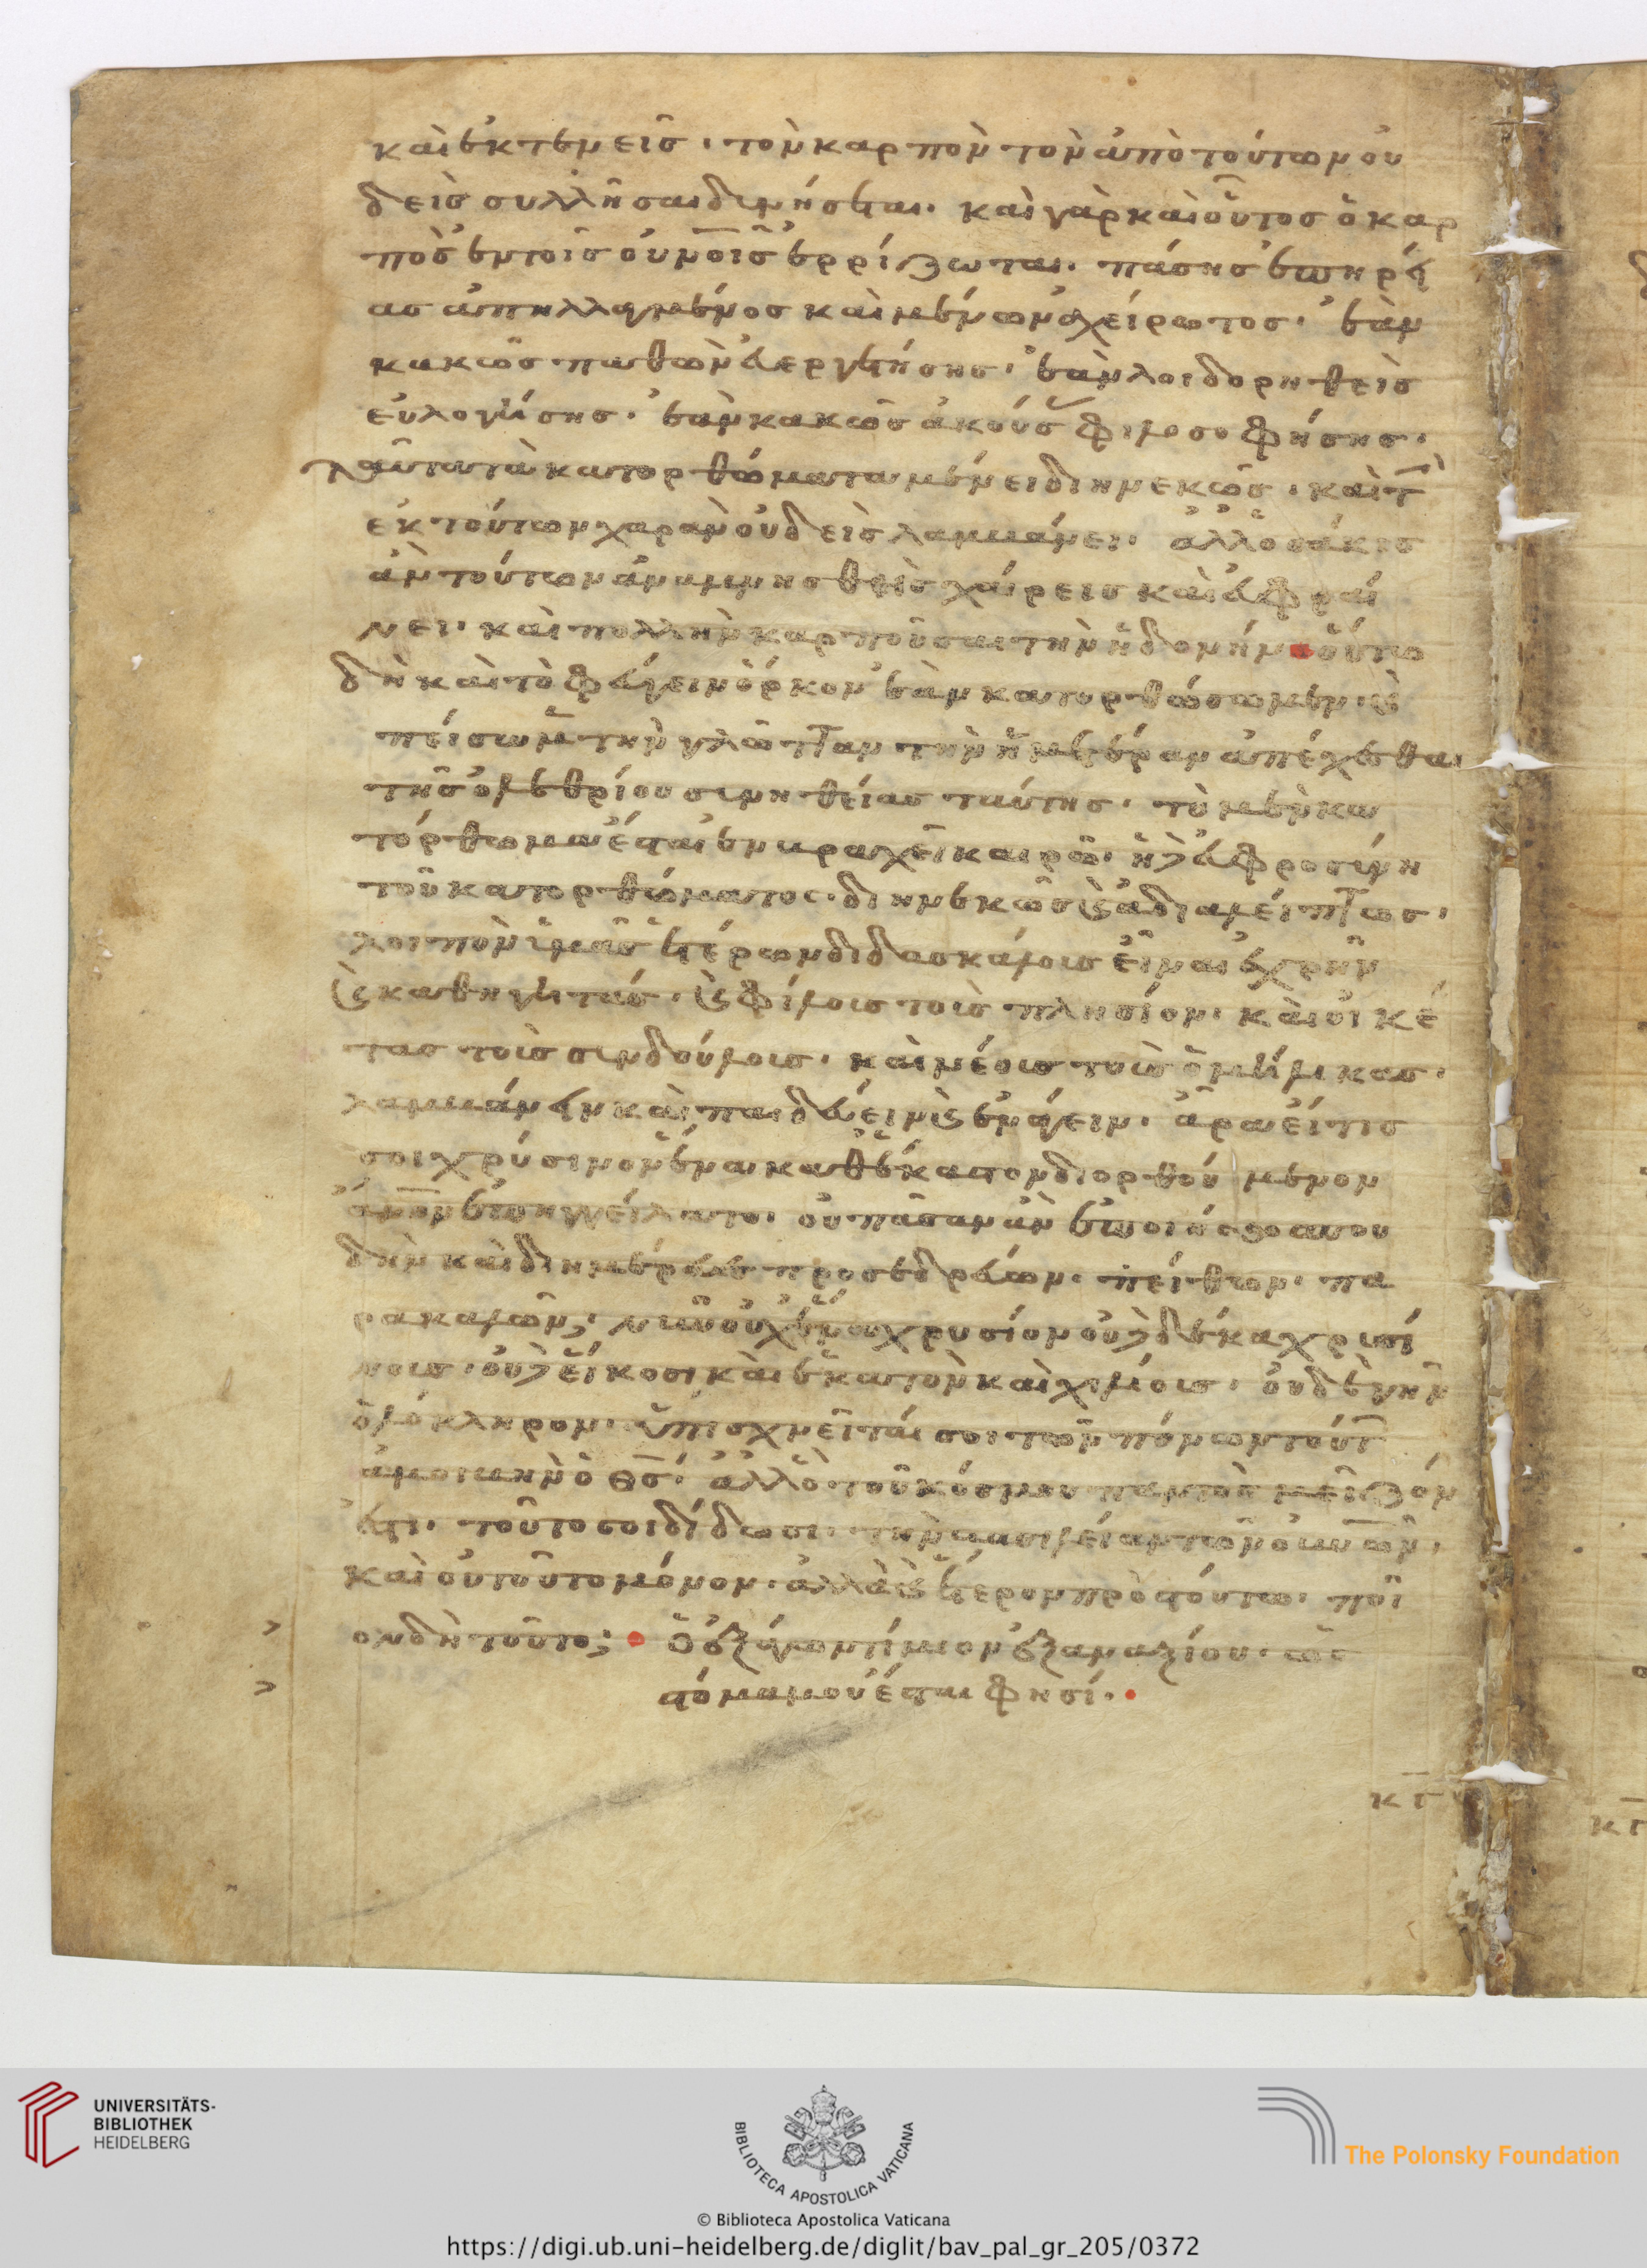 καὶ ἐκτεμεῖς· τὸν καρπὸν τὸν ἀπὸ τούτων οὐ
δεὶς συλλῆσαι δυνήσεται. καὶ γὰρ καὶ οὗτος ὁ καρ
πὸς ἐν τοῖς οὐνοῖς ἐρρίζωται. πάσης ἐπηρεί
ας ἀπηλλαγμένος καὶ μένων ἀχείρωτος· ἐὰν
κακῶς παθὼν εὐεργετήσης· ἐὰν λοιδορηθεὶς
εὐλογήσης· ἐὰν κακῶς ἀκούσ φιλοσοφήσης·
ταῦτα τὰ κατορθώματα μένει διηνεκῶς· καὶ τ
ἐκ τούτων χαρὰν οὐδεὶς λαμβάνει· ἀλλ' ὁσάκις
ἀν τούτων ἀναμνησθεὶς χαίρεις καὶ εὐφραί
νει· καὶ πολλὴν καρποῦσαι τὴν ἡδονήν οὕτω
δὴ καὶ τὸ φεύγειν ὅρκον ἐὰν κατορθώσωμεν καὶ
πείσωμ τὴν γλῶτταν τὴν ἡμετέραν ἀπέχεσθαι
τῆς ὀλεθρίου συνηθείας ταύτης· τὸ μὲν κα
τόρθωμα ἔσται ἐν βραχεῖ καιρῶ· ἡ δὲ εὐφροσύνη
τοῦ κατορθώματος διηνεκῶς καὶ ἀδιαλείπτως·
λοιπὸν ὑμᾶς ἑτέρων διδασκάλους εἶναι ἐχρῆν
καὶ καθηγητάς· καὶ φίλους τοὺς πλησίον· καὶ οἰκέ
τας τοὺς συνδούλους· καὶ νέους τοὺς ὁμήλικας·
λαμβάνειν καὶ παιδεύειν καὶ ἐνάγειν· ἆρα εἴ τις
σοι χρύσινον ἕνα καθ' ἕκαστον διορθούμενον
ἀνον ἐπηγγείλατο· οὐ πᾶσαν ἂν ἐποιήσω σπου
δὴν καὶ διημέρευες προσεδρεύων· πείθων· πα
ρακαλῶν; νῦν οὐχ ἕνα χρυσίον οὐδὲ δέκα χρυσί
νους· οὐδὲ εἴκοσι καὶ ἑκατὸν καὶ χιλίους· οὐδὲ γῆν
ὁλόκληρον· ὑπισχνεῖταί σοι τῶν πόνων τούτ
ἀμοιβὴν ὁ θς· ἀλλ' ὃ τοῦ κόσμου παντὸς μεῖζόν
ἐστι· τοῦτο σοι δίδωσι· τὴν βασιλείαν τῶν οὐνῶν·
καὶ οὐ τοῦτο μόνον· ἀλλὰ καὶ ἕτερον πρὸς τούτω· ποῖ
ον δὴ τοῦτο; ὁ ἐξάγων τίμιον ἐξ ἀναξίου· ὡς
στόμα μου ἔσται φησί·
κγ
κγ
UNIVERSITÄTS-
BIBLIOTHEK
HEIDELBERG
BIBLIOTECA APOSTOLICA VATICANA
The Polonsky Foundation
© Biblioteca Apostolica Vaticana
https://digi.ub.uni-heidelberg.de/diglit/bav_pal_gr_205/0372